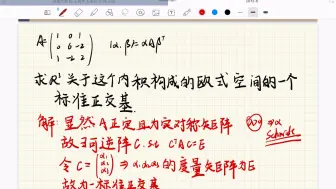 A= ( 1 0 1
0 6 -2 (α,β)=αAβᵀ
1 -2 2 )
求R³关于这个内积构成的欧式空间的一个
标准正交基.
解:显然A正定且为实对称矩阵
故∃可逆阵C s.t CᵀAC=E
令C=(α₁ α₂ α₃) ⇒α₁α₂α₃的度量矩阵为E
故为一标准正交基
⇒α